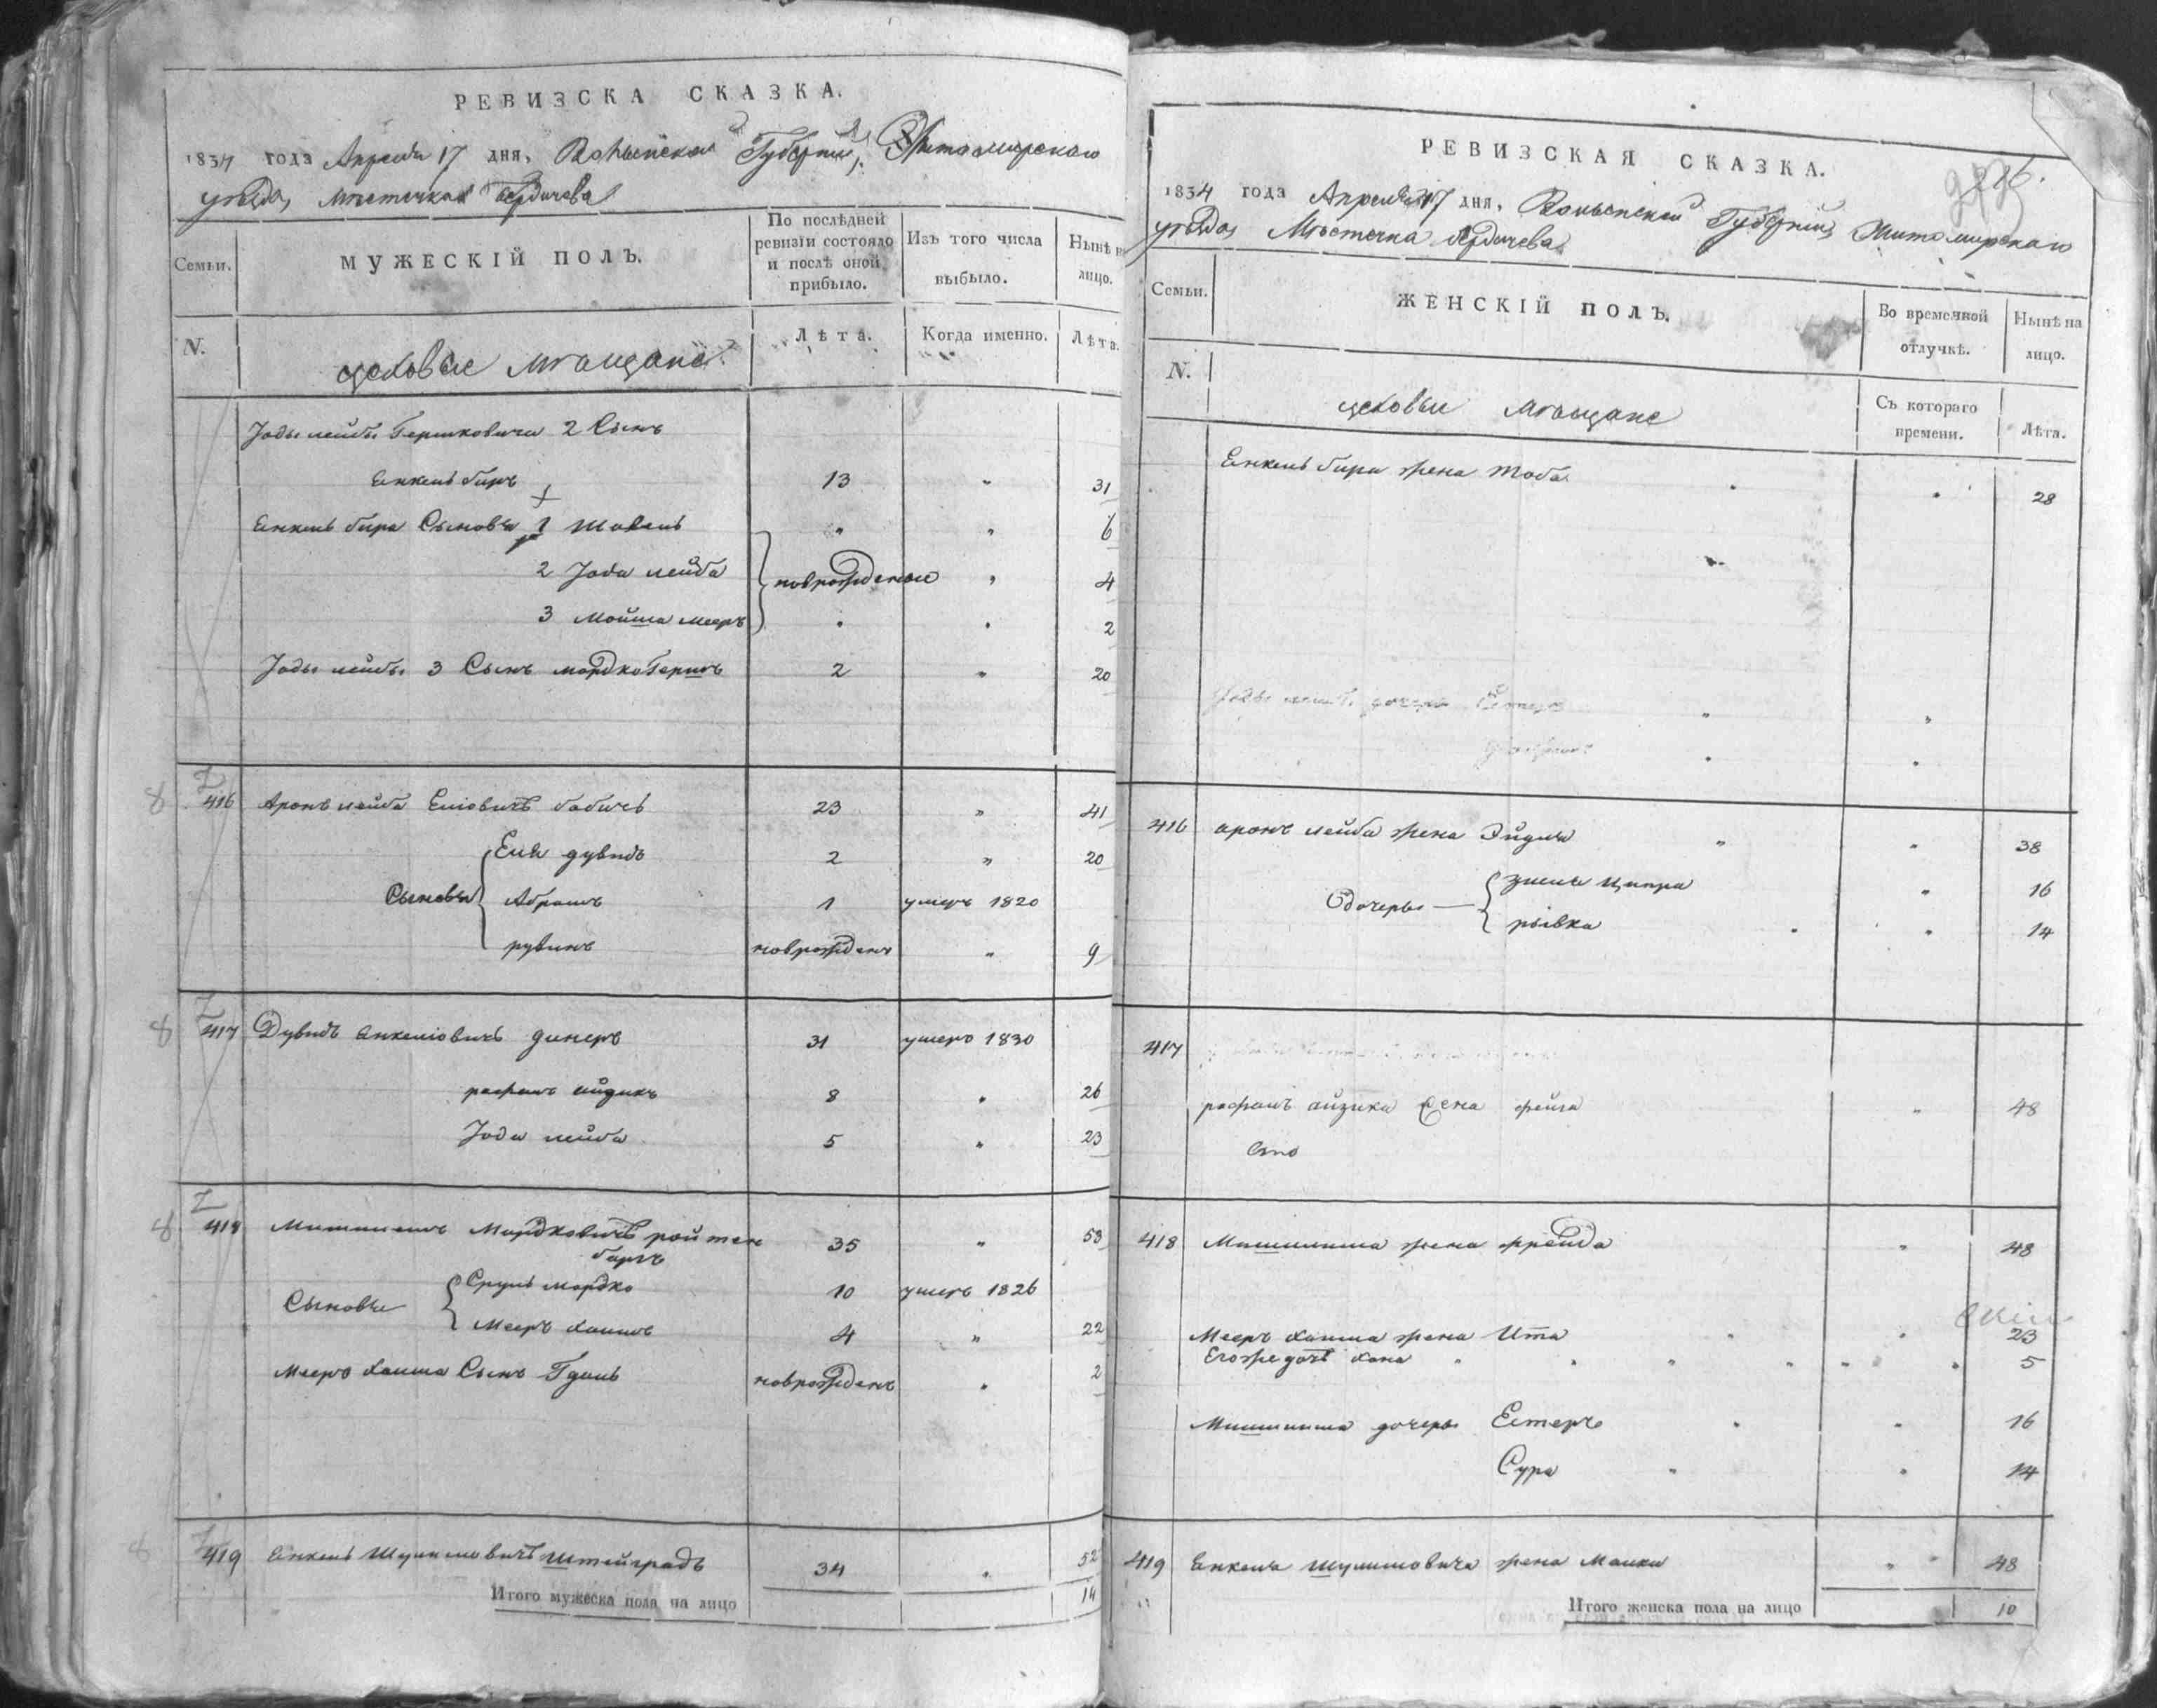 РЕВИЗСКА СКАЗКА.
1834 года Апреля 17 дня, Волынской Губернии, Житомирского
уезда, местечка Бердичева
Семьи.
МУЖЕСКІЙ ПОЛЪ.
По послѣдней ревизіи состояло и послѣ оной прибыло.
Изъ того числа выбыло.
Нынѣ на лицо.
N.
цеховые мещане.
Лѣта.
Когда именно.
Лѣта.
Іоды лейбы Гершковича 2 Сынъ
Енкель биръ 13 " 31
Енкель бира Сыновья 1 Шовель " " 6
2 Іода лейба новрожденые " 4
3 Мойша мееръ " " 2
Іоды лейбы 3 Сынъ мордко Гершъ 2 " 20
8 416 Аронъ лейба Еліовичъ бабичъ 23 " 41
Сыновья
Еля дувидъ 2 " 20
Абрамъ 1 умеръ 1820
рувинъ новрожденъ " 9
8 417 Дувидъ Енкеліовичъ динеръ 31 умеръ 1830
8 " 26
Іода лейба 5 " 23
8 418 Мордковичъ ройтен
баргъ 35 " 53
Сыновья
Сруль мордко 10 умеръ 1826
Мееръ хаимъ 4 " 22
Мееръ хаима Сынъ Гдаль новрожденъ " 2
8 419 Енкель Шулимовичъ Штейградъ 34 " 52
Итого мужеска пола на лицо 14
РЕВИЗСКАЯ СКАЗКА.
216.
1834 года Апреля 17 дня, Волынской Губернии Житомирского
уезда, Местечка Бердичева
Семьи.
ЖЕНСКІЙ ПОЛЪ.
Во временной отлучкѣ.
Нынѣ на лицо.
N.
цеховые мещане
Съ котораго времени.
Лѣта.
Енкель бира жена Тоба " " 28
Іоды лейбы дочери Естеръ " "
416 аронъ лейба жена Эйдля " " 38
дочеры
зисля Ципра " 16
рывка " " 14
417
айзика жена фейга " 48
418 жена фрейда " 48
Мееръ хаима жена Ита " " 23
Егожедочъ хана " " " " " " 5
дочеры Естеръ " " 16
Сура " " 14
419 Енкеля Шулимовича жена Малки " " 48
Итого женска пола на лицо 10